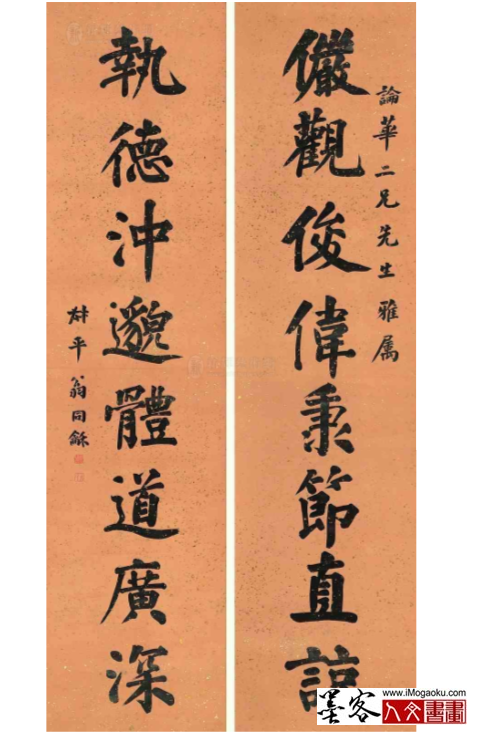 論華二兄先生雅属
儼觀俊偉秉節直諒
執德沖邈體道廣深
叔平翁同龢
墨客
www.iMogaoku.com
人文書畫